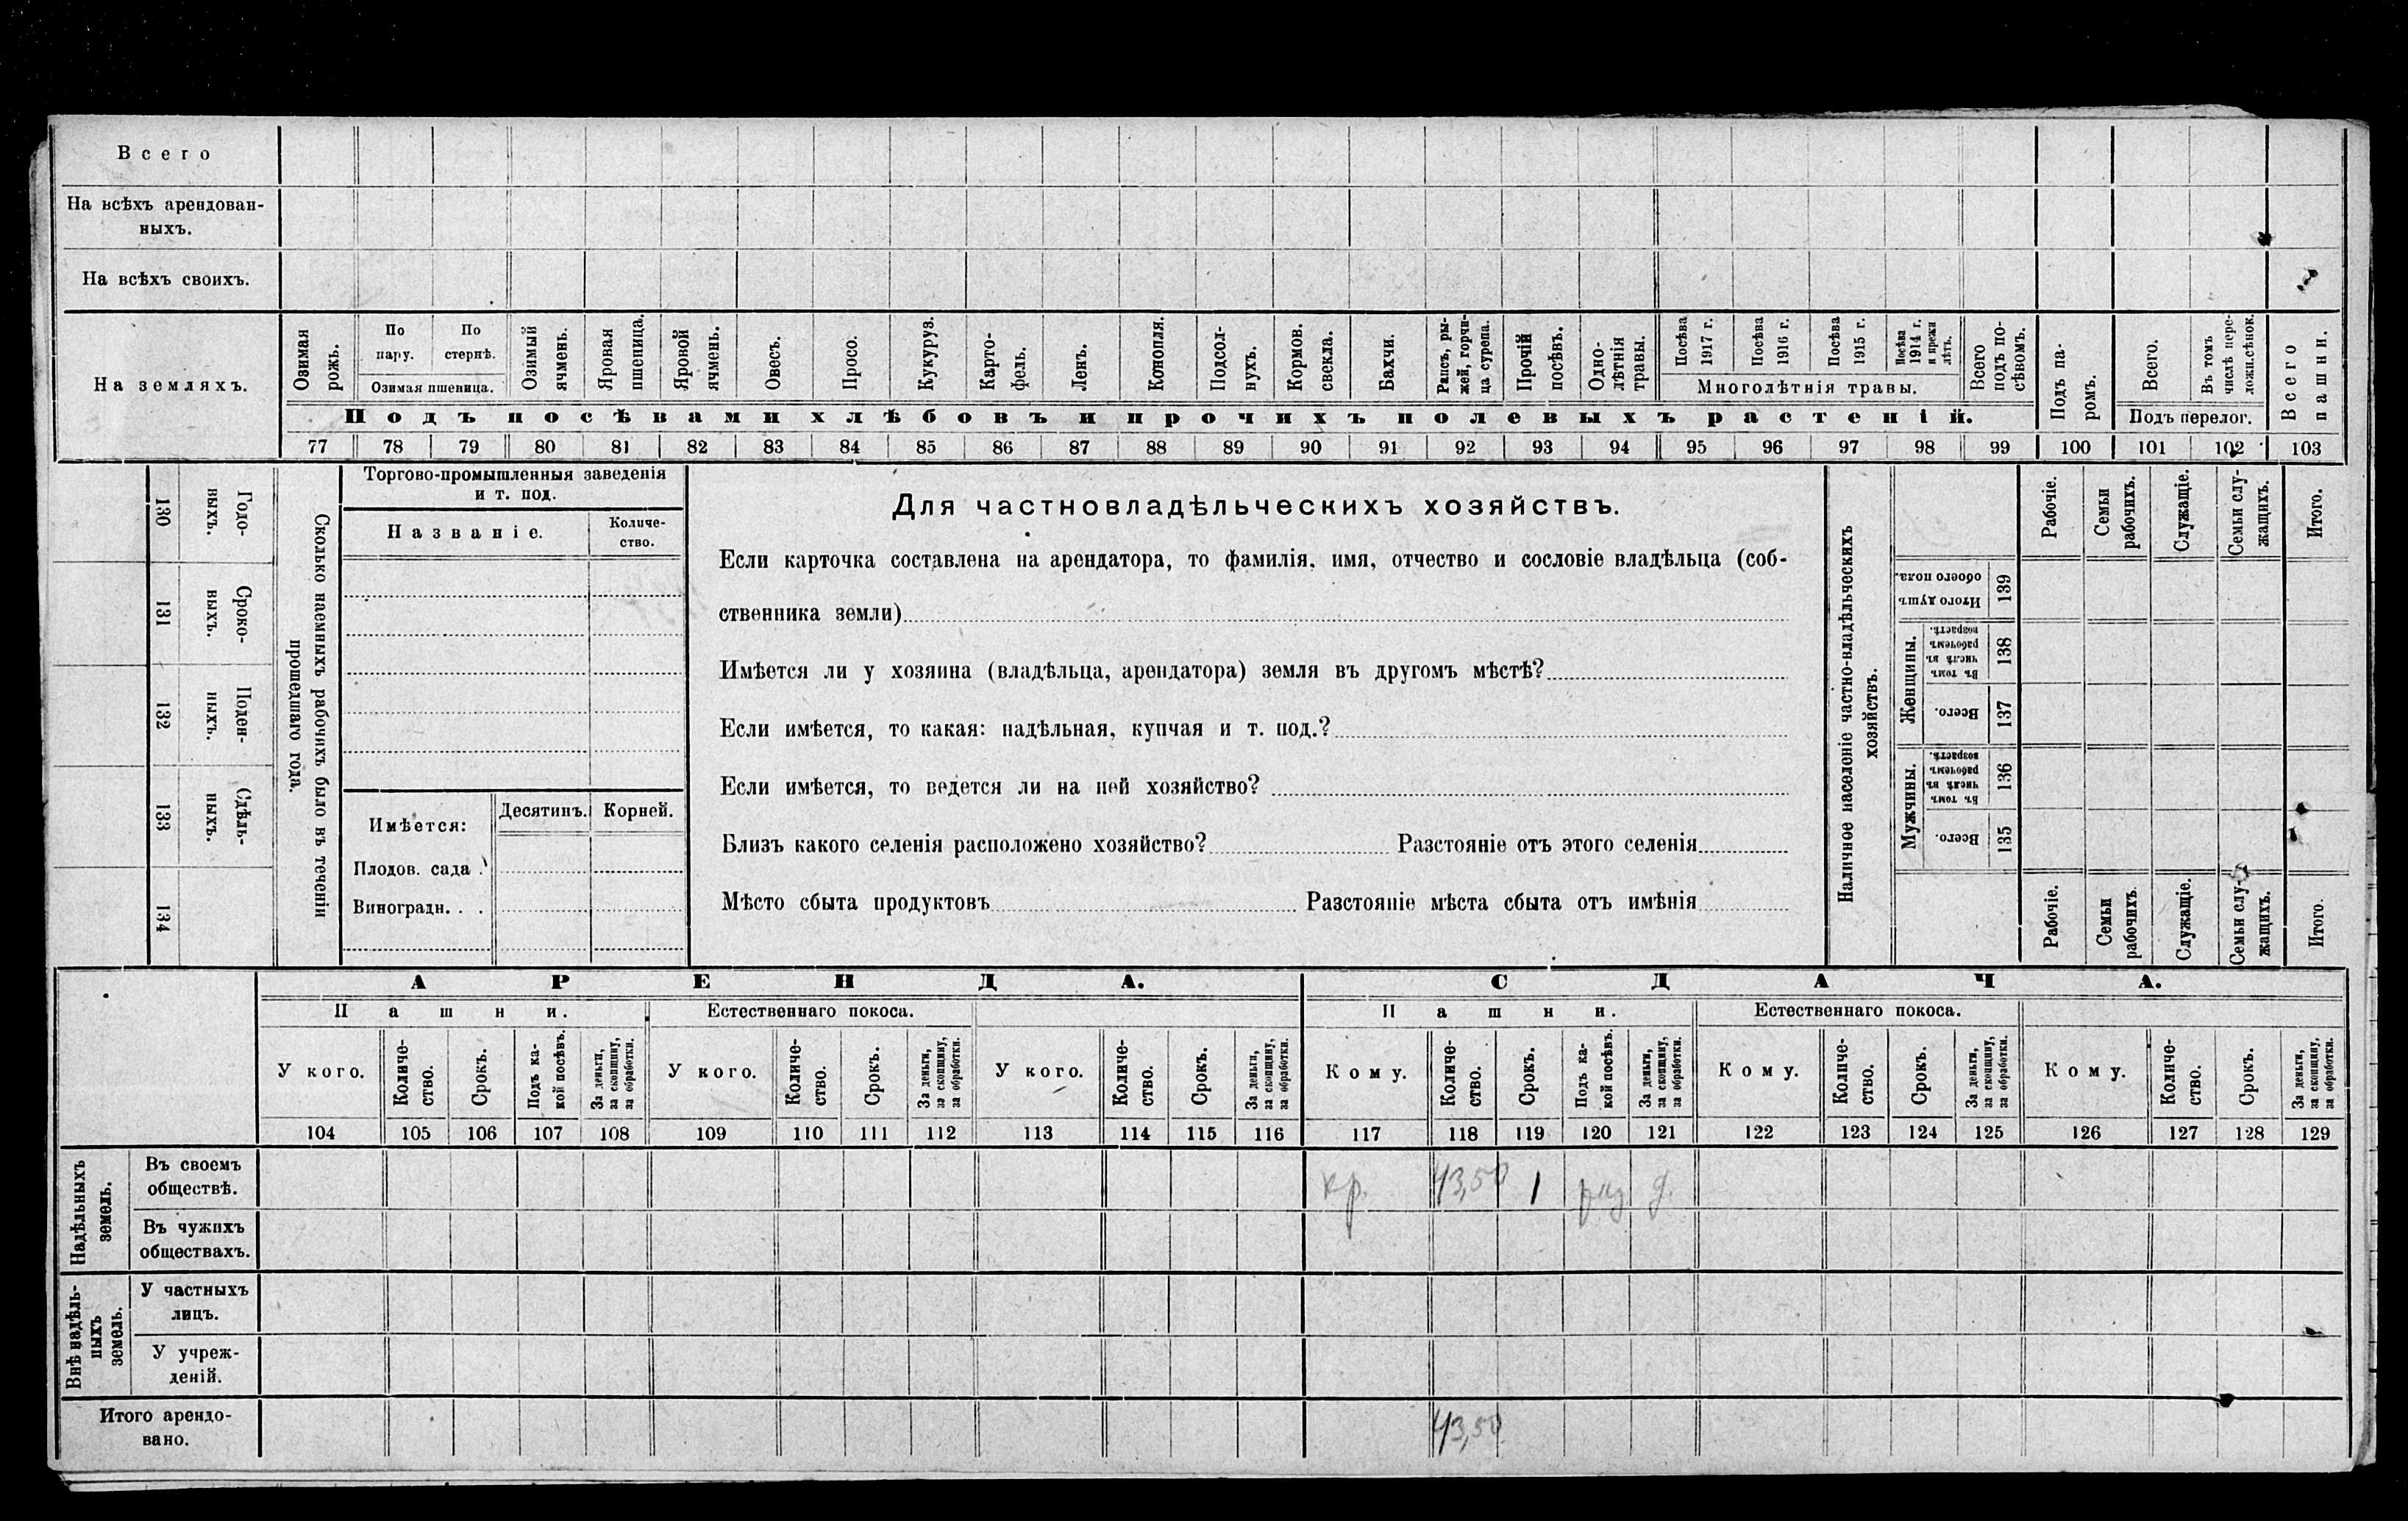 Всего
На всѣхъ арендован-
ныхъ.
На всѣхъ своихъ.
На земляхъ.
Озимая рожь.
По пару.
По стернѣ.
Озимая пшеница.
Озимый ячмень.
Яровая пшеница.
Яровой ячмень.
Овесъ.
Просо.
Кукуруз.
Карто-
фель.
Ленъ.
Конопля.
Подсол-
нухъ.
Кормов. свекла.
Бахчи.
Рапсъ, ры-
жей, горчи-
ца сурепа.
Прочій посѣвъ.
Одно-
лѣтнія травы.
Посѣва 1917 г.
Посѣва 1916 г.
Посѣва 1915 г.
Посѣва 1914 г. и прежн лѣтъ.
Многолѣтнія травы.
Всего подъ по-
сѣвомъ.
Подъ посѣвами хлѣбовъ и прочихъ полевыхъ растеній.
Подъ па-
ромъ.
Всего.
Въ томъ числѣ пере-
ложн.сѣнок.
Подъ перелог.
Всего пашни.
77 78 79 80 81 82 83 84 85 86 87 88 89 90 91 92 93 94 95 96 97 98 99 100 101 102 103
130 Годо-
выхъ.
131 Сроко-
ныхъ.
132 Поден-
ныхъ.
133 Сдѣль-
ныхъ.
134
Сколько наемныхъ рабочихъ было въ теченіи
прошедшаго года.
Торгово-промышленныя заведенія
и т. под.
Названіе.
Количе-
ство.
Имѣется:
Десятинъ.
Корней.
Плодов. сада .
Виноградн. . .
Для частновладѣльческихъ хозяйствъ.
Если карточка составлена на арендатора, то фамилія, имя, отчество и сословіе владѣльца (соб-
ственника земли)
Имѣется ли у хозяина (владѣльца, арендатора) земля въ другомъ мѣстѣ?
Если имѣется, то какая: надѣльная, купчая и т. под.?
Если имѣется, то ведется ли на ней хозяйство?
Близъ какого селенія расположено хозяйство? Разстояніе отъ этого селенія
Мѣсто сбыта продуктовъ Разстояніе мѣста сбыта отъ имѣнія
Наличное населеніе частно-владѣльческихъ
хозяйствъ.
Рабочіе.
Семьи рабочихъ.
Служащіе.
Семьи слу-
жащихъ.
Итого.
Итого душъ обоего пола. 139
Женщины.
Въ томъ числѣ въ рабочемъ возрастѣ. 138
Всего. 137
Мужчины.
Въ томъ числѣ въ рабочемъ возрастѣ. 136
Всего. 135
Рабочіе.
Семьи рабочихъ
Служащіе.
Семьи слу-
жащихъ.
Итого.
АРЕНДА. СДАЧА.
Пашни. Естественнаго покоса. Пашни. Естественнаго покоса.
У кого.
Количе-
ство.
Срокъ.
Подъ ка-
кой посѣвъ.
За деньги, за скопщину, за обработки.
У кого.
Количе-
ство.
Срокъ.
За деньги, за скопщину, за обработки.
У кого.
Количе-
ство.
Срокъ.
За деньги, за скопщину, за обработки.
Кому.
Количе-
ство.
Срокъ.
Подъ ка-
кой посѣвъ.
За деньги, за скопщину, за обработки.
Кому.
Количе-
ство.
Срокъ.
За деньги, за скопщину, за обработки.
Кому.
Количе-
ство.
Срокъ.
За деньги, за скопщину, за обработки.
104 105 106 107 108 109 110 111 112 113 114 115 116 117 118 119 120 121 122 123 124 125 126 127 128 129
Надѣльныхъ
земель.
Въ своемъ
обществѣ.
кр. 43,50 1 раз д.
Въ чужихъ
обществахъ.
Внѣ надѣль-
ныхъ
земель.
У частныхъ
лицъ.
У учреж-
деній.
Итого арендо-
вано.
43,50